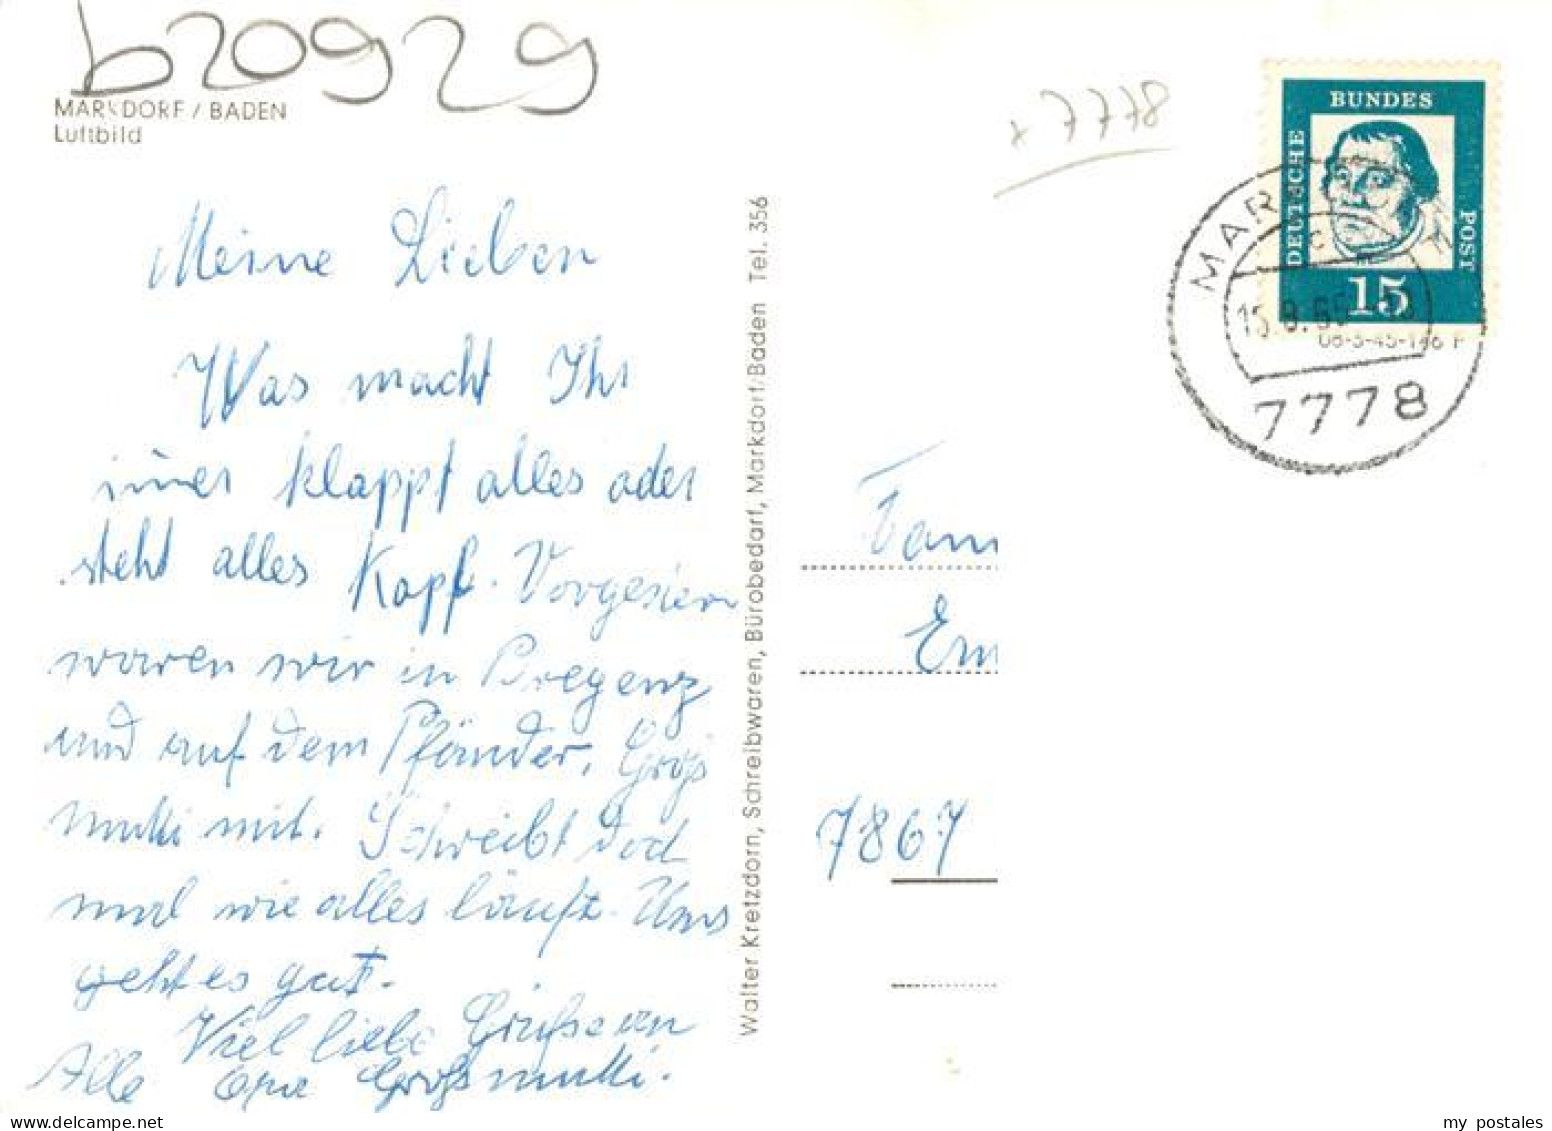 b20929
MARKDORF / BADEN
Luftbild
x 7778
DEUTSCHE BUNDES POST
15
MAR
c
15.8.65
08-5-45-146 F
7778
Meine Lieben
Was macht Ihr
imer klappt alles oder
steht alles Kopf. Vorgestern
waren wir in Bregenz
und auf dem Pfänder. Groß
mutti mit. Schreibt doch
mal wie alles läuft. Uns
geht es gut.
Viel liebe Grüße an
Alle Opa Großmutti.
Walter Kretzdorn, Schreibwaren, Bürobedarf, Markdorf/Baden Tel. 356
Fam
Em
7867
my postales